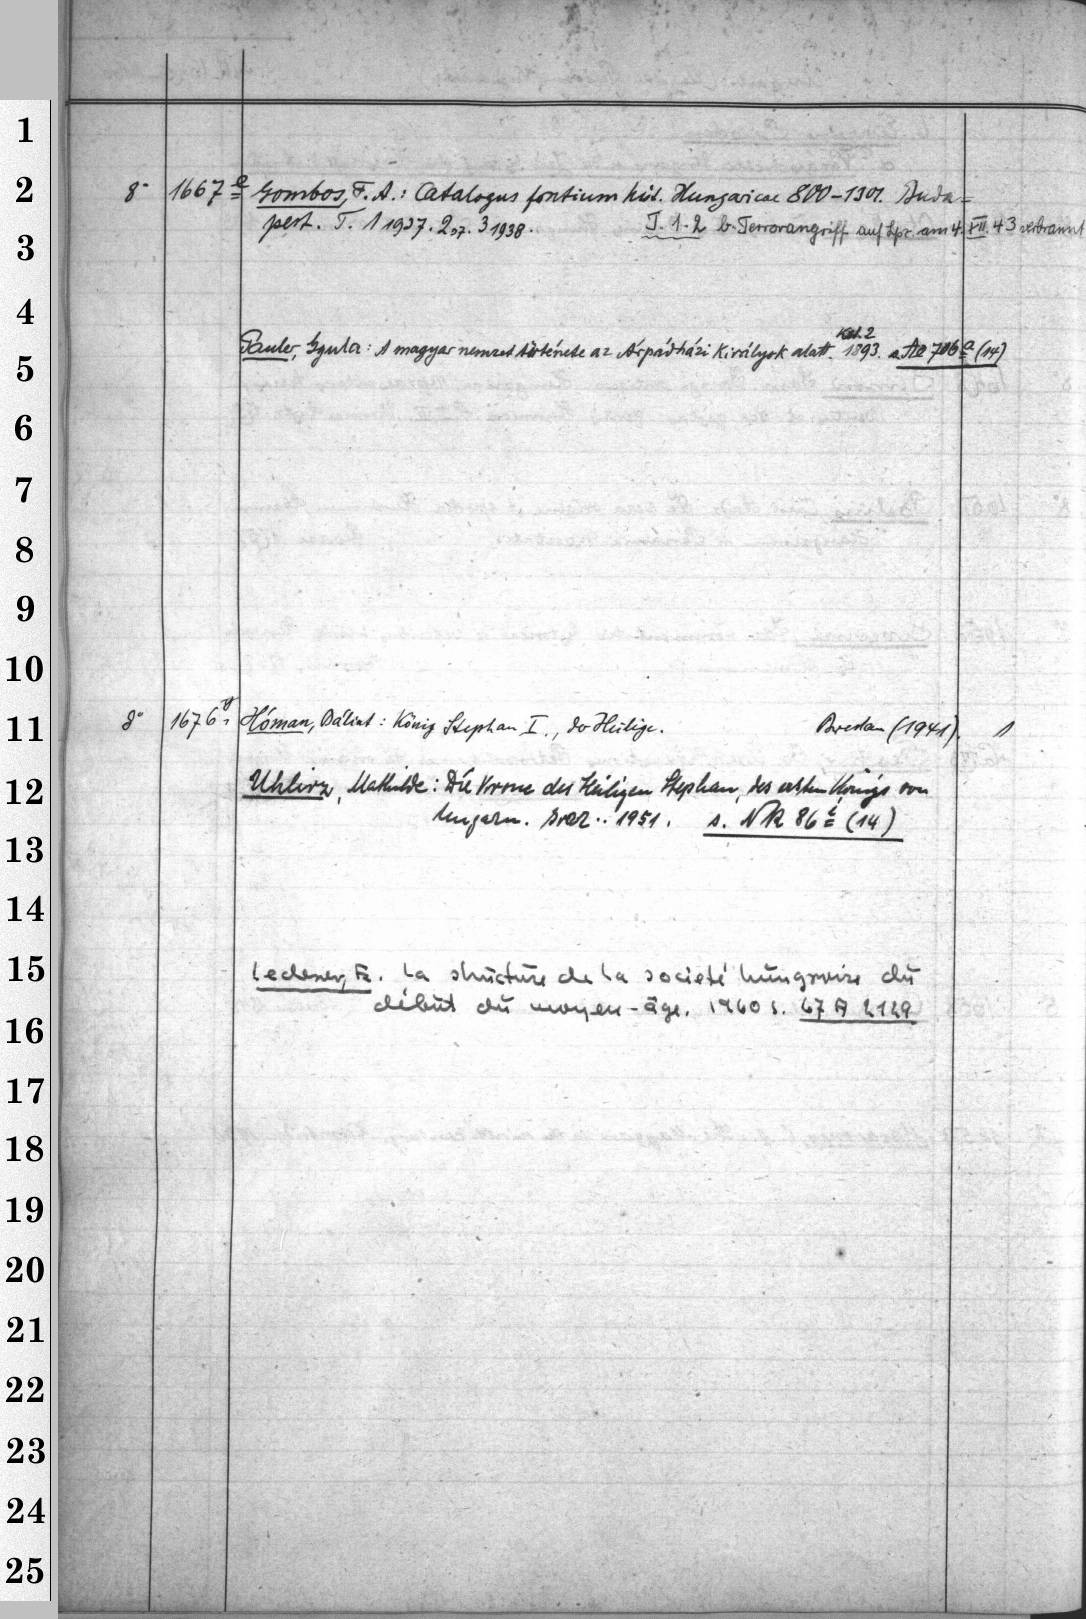 1
2
3
4
5
6
7
8
9
10
11
12
13
14
15
16
17
18
19
20
21
22
23
24
25
8° 1667 a Gombos, F. A.: Catalogus fontium hist. Hungaricae 800-1301. Buda=
pest. T. 1 1937. 2 37. 3 1938. T. 1. 2 b. Terrorangriff auf Lpz. am 4. XII. 43 verbrannt
Köt. 2
Pauler, Gyula: A magyar nemzet története az Árpádházi Királyok alatt. 1893. s. Ae 706 a (14)
8° 1676 Hóman, Bálint: König Stephan I., der Heilige. Breslau (1941). 1
Uhlirz, Mathilde: Die Krone des Heiligen Stephan, des ersten Königs von
Ungarn. Graz .. 1951. s. NR 86 (14)
Lederer, E. La structure de la société hungroise du
début du moyen-âge. 1960 s. 67 A 2129